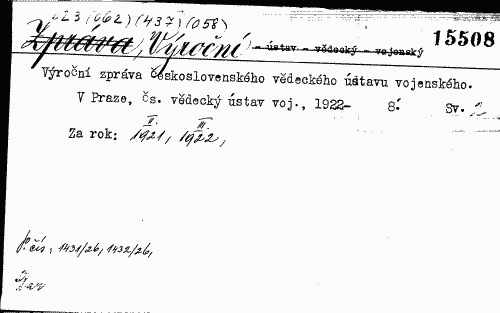 023(062)(437)(058)
Zpráva, Výroční - ústav - vědecký - vojenský 15508
Výroční zpráva československého vědeckého ústavu vojenského.
V Praze, čs. vědecký ústav voj., 1922- 8° Sv. 2
Za rok: II. 1921, III. 1922,
p. čís. 1431/26, 1432/26,